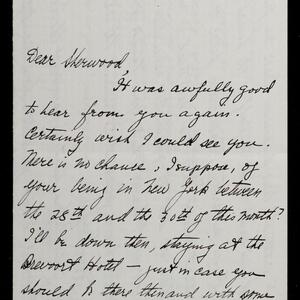 Dear Sherwood,
It was awfully good
to hear from you again.
Certainly wish I could see you.
There is no chance, I suppose, of
your being in New York between
the 28th and the 30th of this month?
I'll be down then, staying at the
Brevoort Hotel — just in case you
should be there then and with some